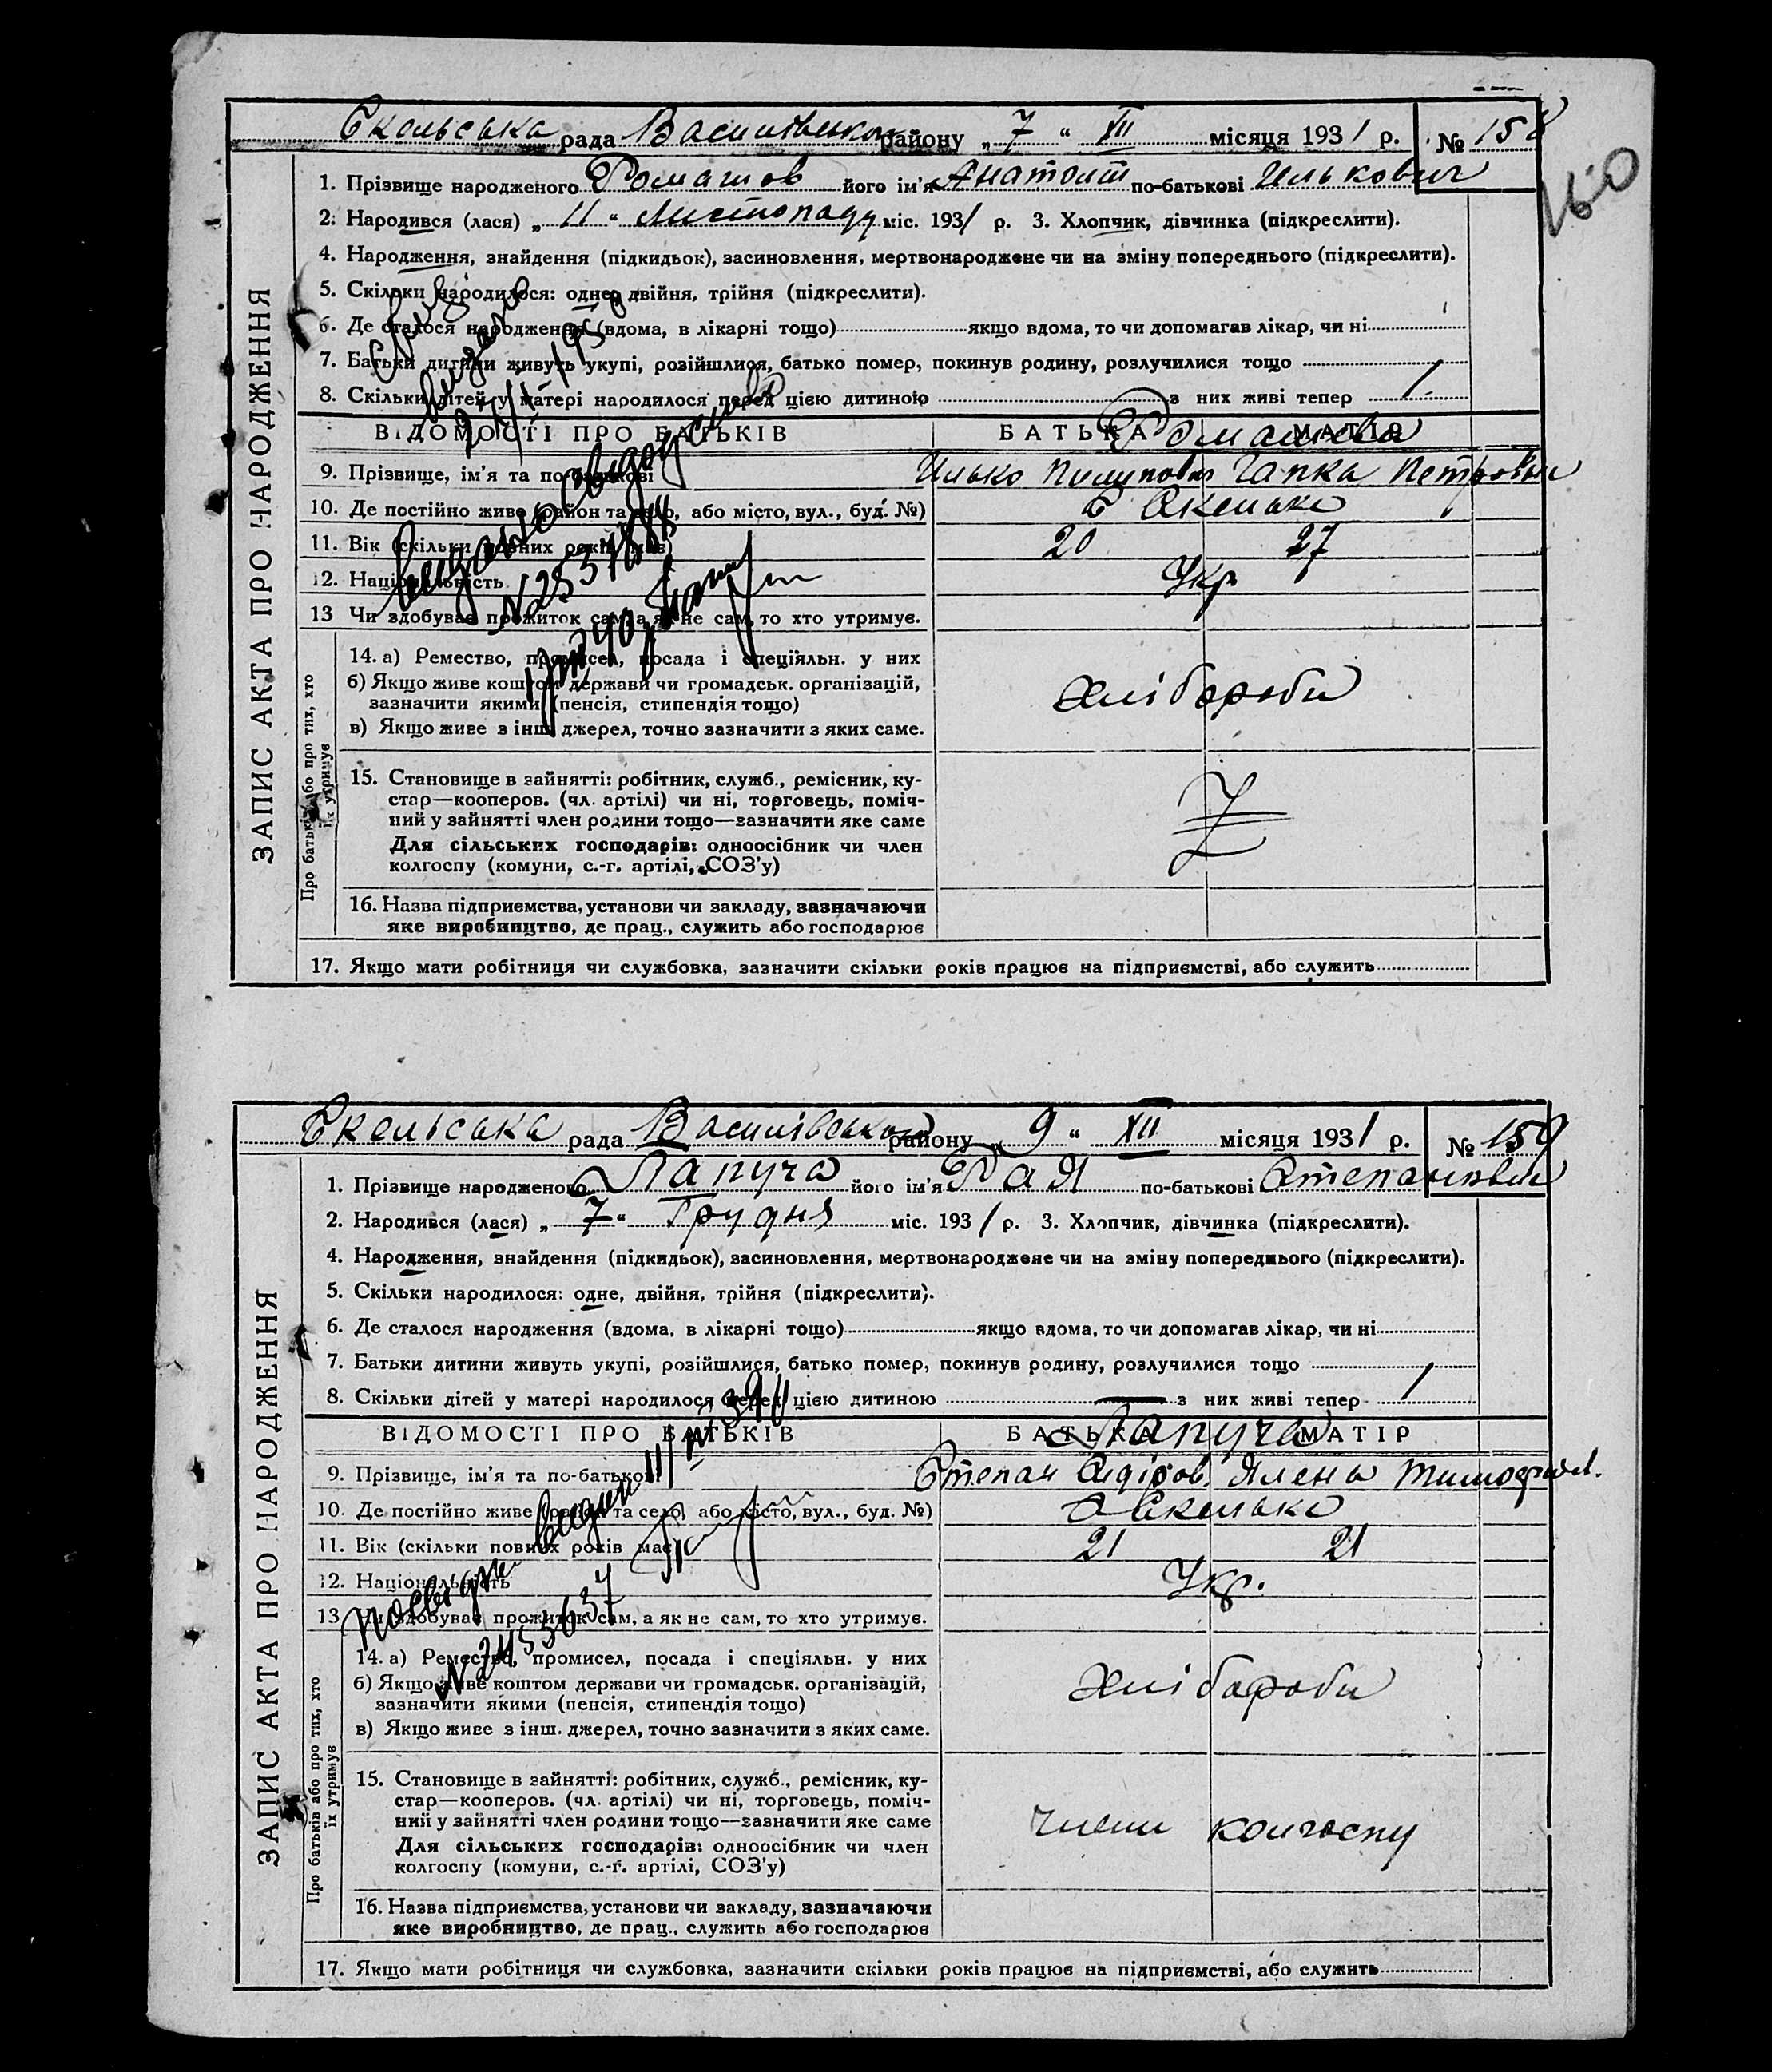 Скельська рада Василівського району „7“ XII місяця 1931 р. № 158
160
ЗАПИС АКТА ПРО НАРОДЖЕННЯ
1. Прізвище народженого Ромашов його ім'я Анатолій по-батькові Ількович
2. Народився (лася) „11“ Листопаду міс. 1931 р. 3. Хлопчик, дівчинка (підкреслити).
4. Народження, знайдення (підкидьок), засиновлення, мертвонароджене чи на зміну попереднього (підкреслити).
5. Скільки народилося: одне, двійня, трійня (підкреслити).
6. Де сталося народження (вдома, в лікарні тощо) якщо вдома, то чи допомагав лікар, чи ні
7. Батьки дитини живуть укупі, розійшлися, батько помер, покинув родину, розлучилися тощо
8. Скільки дітей у матері народилося перед цією дитиною з них живі тепер 1
ВІДОМОСТІ ПРО БАТЬКІВ БАТЬКА МАТІР
Ромашова
9. Прізвище, ім'я та по-батькові Илько Пилипович Гапка Петровн
10. Де постійно живе (район та село, або місто, вул., буд. №) С Скельке
11. Вік (скільки повних років має) 20 27
12. Національність Укр
13 Чи здобуває прожиток сам, а як не сам, то хто утримує.
Про батьків або про тих, хто їх утримує
14. а) Ремество, промисел, посада і спеціяльн. у них
б) Якщо живе коштом держави чи громадськ. організацій,
зазначити якими (пенсія, стипендія тощо)
в) Якщо живе з інш. джерел, точно зазначити з яких саме.
Хлібороби
15. Становище в зайнятті: робітник, служб., ремісник, ку-
стар—кооперов. (чл. артілі) чи ні, торговець, поміч-
ний у зайнятті член родини тощо—зазначити яке саме
Для сільських господарів: одноосібник чи член
колгоспу (комуни, с.-г. артілі, СОЗ'у)
16. Назва підприємства, установи чи закладу, зазначаючи
яке виробництво, де прац., служить або господарює
17. Якщо мати робітниця чи службовка, зазначити скільки років працює на підприємстві, або служить
Скельська рада Василівського району „9“ XII місяця 1931 р. № 159
ЗАПИС АКТА ПРО НАРОДЖЕННЯ
1. Прізвище народженого Лапуча його ім'я Рая по-батькові Степановн
2. Народився (лася) „7“ Грудня міс. 1931 р. 3. Хлопчик, дівчинка (підкреслити).
4. Народження, знайдення (підкидьок), засиновлення, мертвонароджене чи на зміну попереднього (підкреслити).
5. Скільки народилося: одне, двійня, трійня (підкреслити).
6. Де сталося народження (вдома, в лікарні тощо) якщо вдома, то чи допомагав лікар, чи ні
7. Батьки дитини живуть укупі, розійшлися, батько помер, покинув родину, розлучилися тощо
8. Скільки дітей у матері народилося перед цією дитиною — з них живі тепер 1
ВІДОМОСТІ ПРО БАТЬКІВ БАТЬКА МАТІР
Лапуча
9. Прізвище, ім'я та по-батькові Степан Ялена
10. Де постійно живе (район та село, або місто, вул., буд. №) Скельке
11. Вік (скільки повних років має) 21 21
12. Національність Укр.
13 Чи здобуває прожиток сам, а як не сам, то хто утримує.
№ 2455637
Про батьків або про тих, хто їх утримує
14. а) Ремество, промисел, посада і спеціяльн. у них
б) Якщо живе коштом держави чи громадськ. організацій,
зазначити якими (пенсія, стипендія тощо)
в) Якщо живе з інш. джерел, точно зазначити з яких саме.
Хлібороби
15. Становище в зайнятті: робітник, служб., ремісник, ку-
стар—кооперов. (чл. артілі) чи ні, торговець, поміч-
ний у зайнятті член родини тощо—зазначити яке саме
Для сільських господарів: одноосібник чи член
колгоспу (комуни, с.-г. артілі, СОЗ'у)
члени колгоспу
16. Назва підприємства, установи чи закладу, зазначаючи
яке виробництво, де прац., служить або господарює
17. Якщо мати робітниця чи службовка, зазначити скільки років працює на підприємстві, або служить